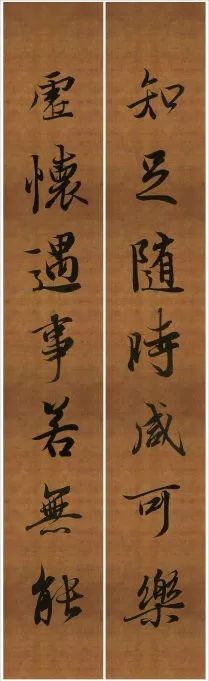 知足隨時咸可樂
虛懷遇事若無能